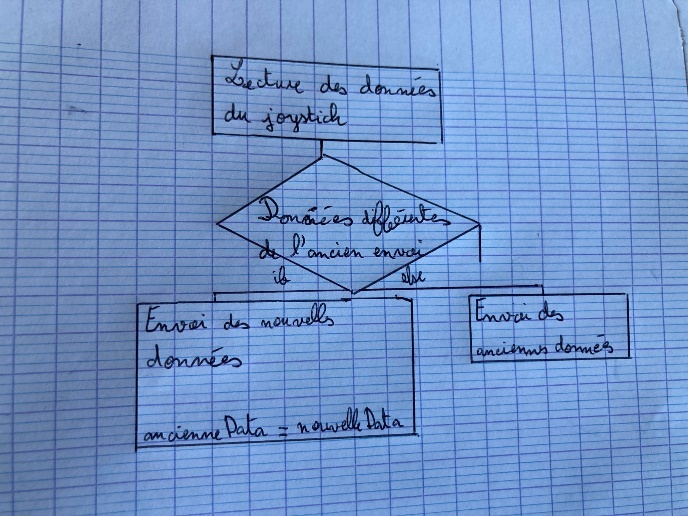 Lecture des données
du joystick
Données différentes
de l'ancien envoi
if else
Envoi des nouvells
données
ancienneData = nouvelleData
Envoi des
anciennes données